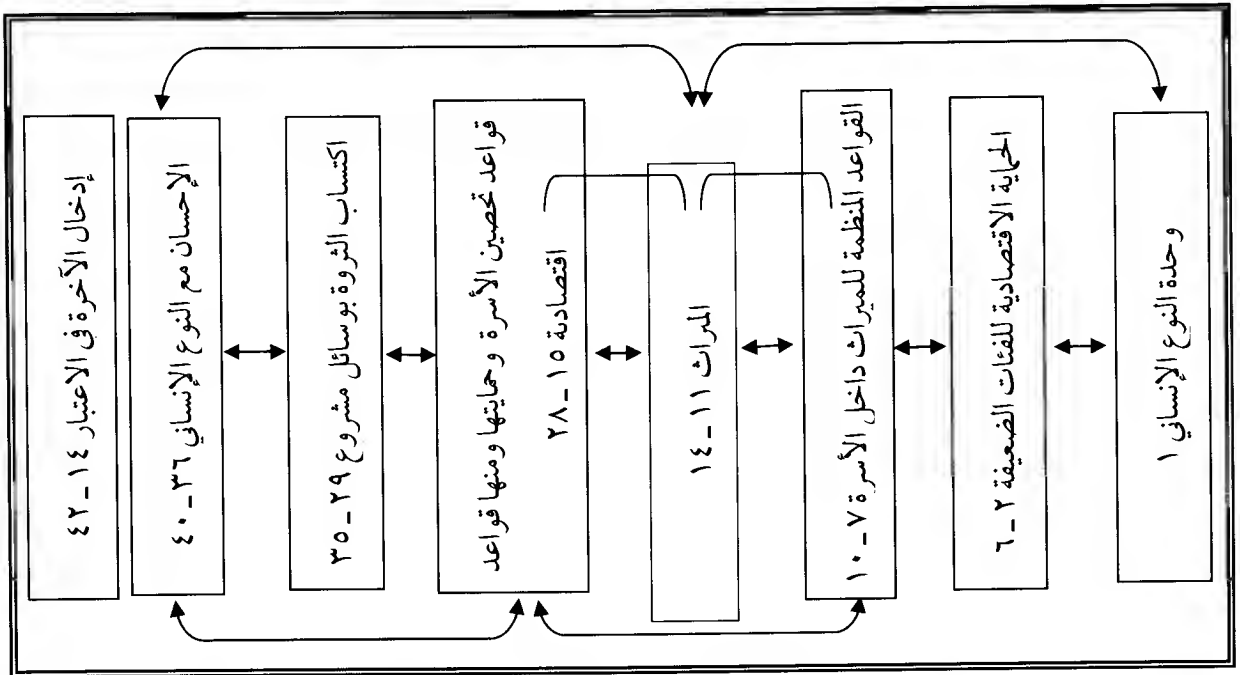 وحدة النوع الإنساني ١
الحماية الاقتصادية للفئات الضعيفة ٢ـ٦
القواعد المنظمة للميراث داخل الأسرة ٧ـ١٠
الميراث ١١ـ١٤
قواعد تحصين الأسرة وحمايتها ومنها قواعد
اقتصادية ١٥ـ٢٨
اكتساب الثروة بوسائل مشروع ٢٩ـ٣٥
الإحسان مع النوع الإنساني ٣٦ـ٤٠
إدخال الآخرة في الاعتبار ١٤ـ٤٢